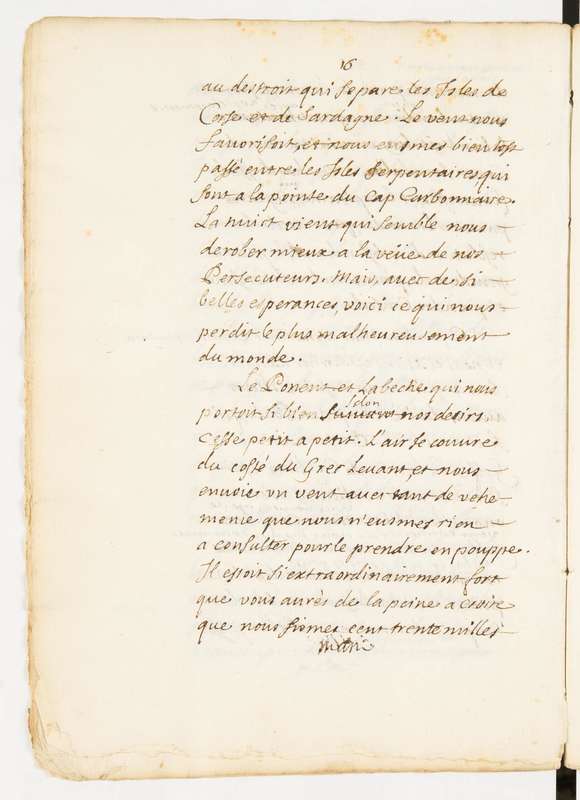 16
au destroit qui separe les Isles de
Corse et de Sardagne. Le vent nous
favorisoit, et nous eusmes bien tost
passé entre les Isles Serpentaires, qui
sont a la pointe du Cap Carbonnaire.
La nuict vient qui semble nous
derober mieux a la veüe de nos
Persecuteurs. Mais, avec de si
belles esperances, voici ce qui nous
perdit le plus malheureusement
du monde.
Le Ponent et Labeche qui nous
selon
portoit si bien suivant nos desirs
cesse petit a petit. L'air se couvre
du costé du Grec Levant, et nous
envoie un vent avec tant de vehe-
mence que nous n'eusmes rien
a consulter pour le prendre en pouppe.
Il estoit si extraordinairement fort
que vous aurés de la peine a croire
que nous fismes cent trente milles